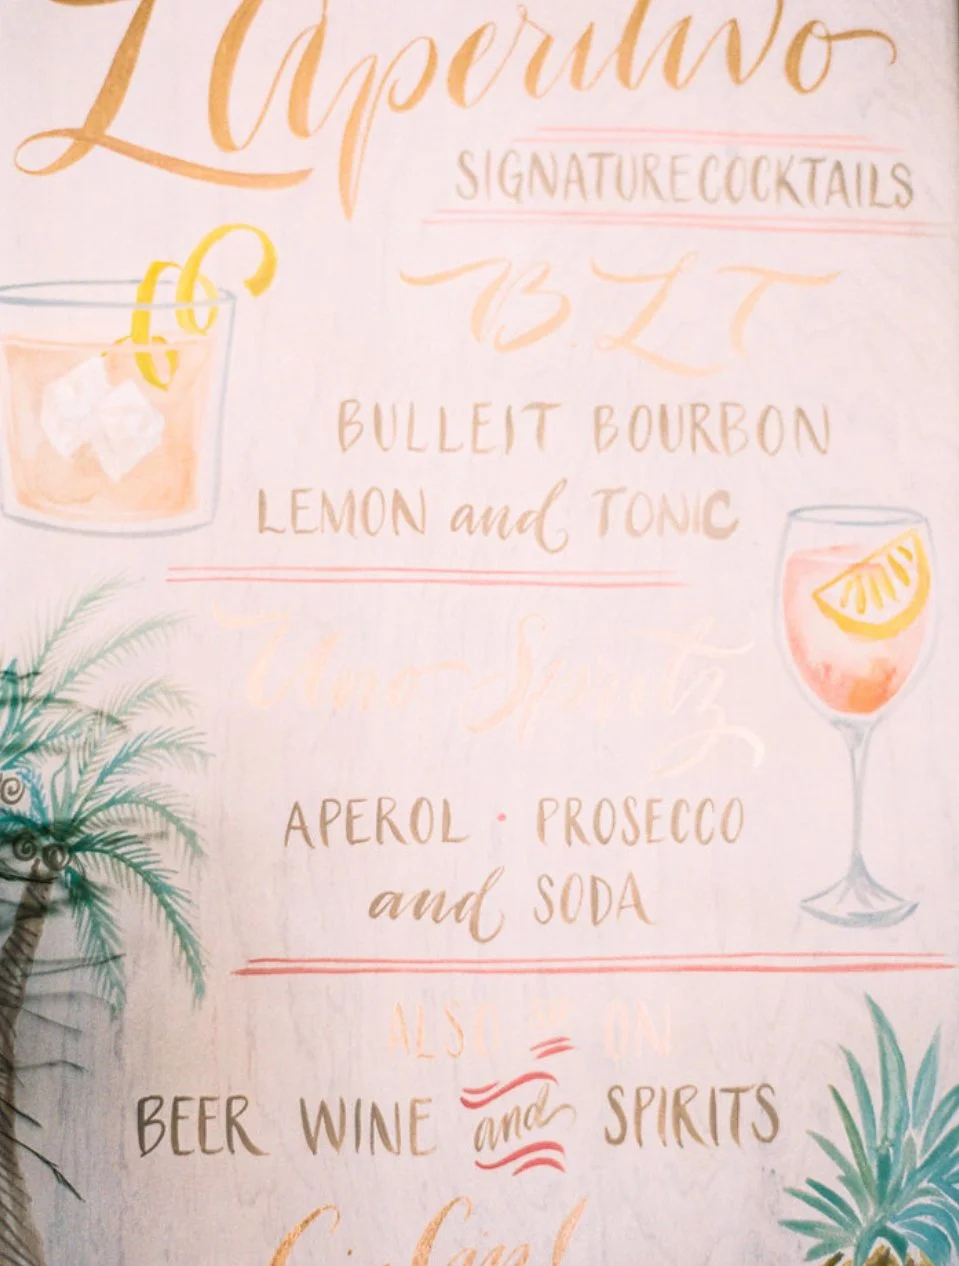 L'Aperitivo
SIGNATURE COCKTAILS
B.L.T
BULLEIT BOURBON
LEMON and TONIC
Uno Spritz
APEROL · PROSECCO
and SODA
ALSO ON
BEER WINE and SPIRITS